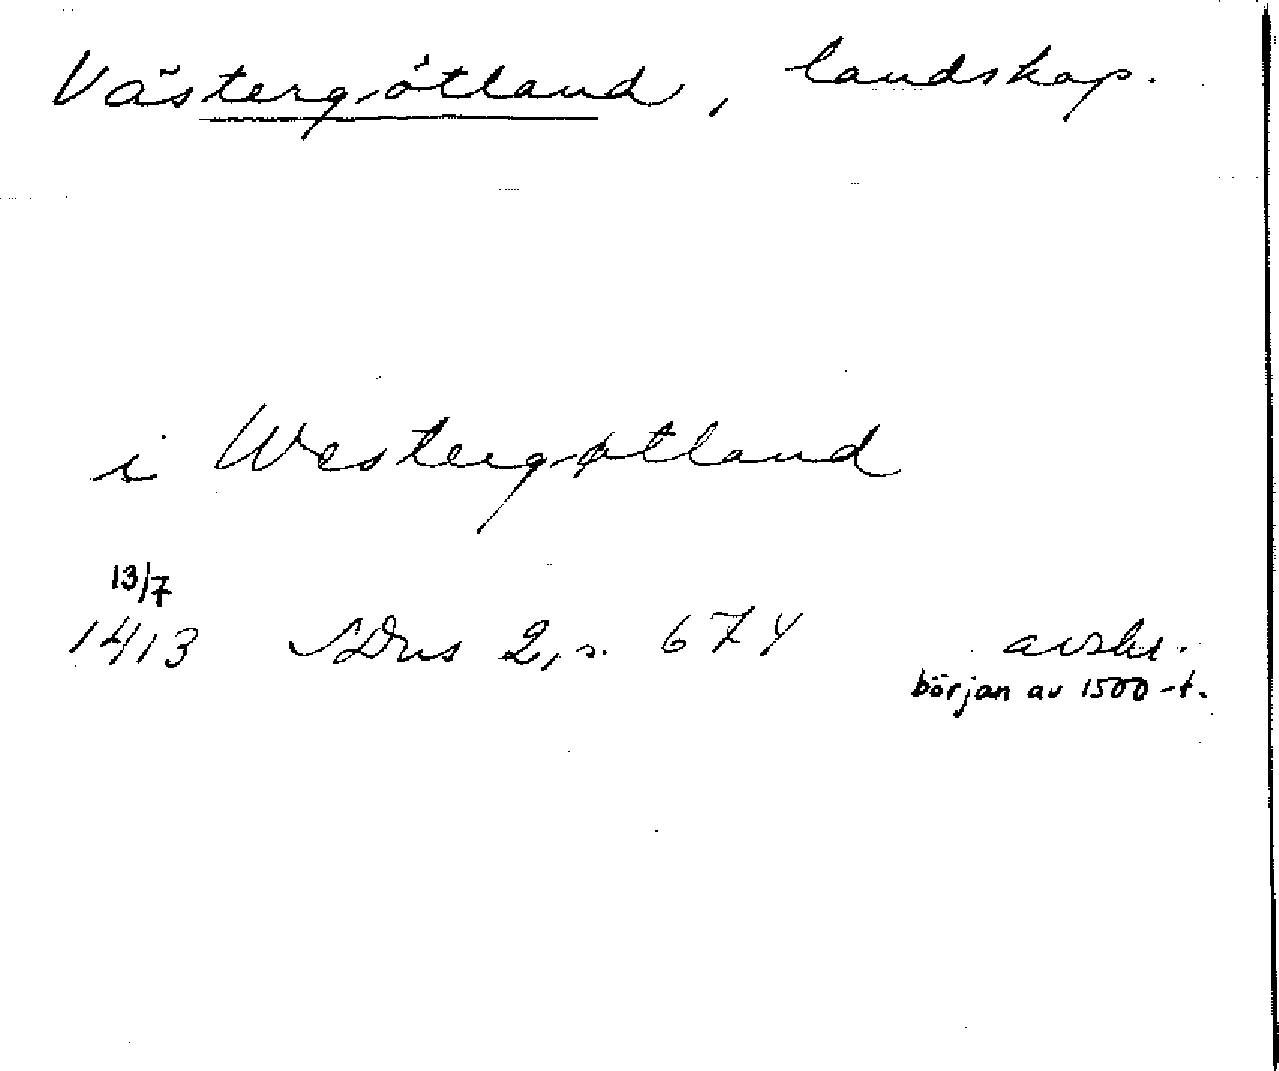 Västergötland, landskap.
i Westergøtland
13/7
1413 SDns 2, s. 674 avskr.
början av 1500-t.